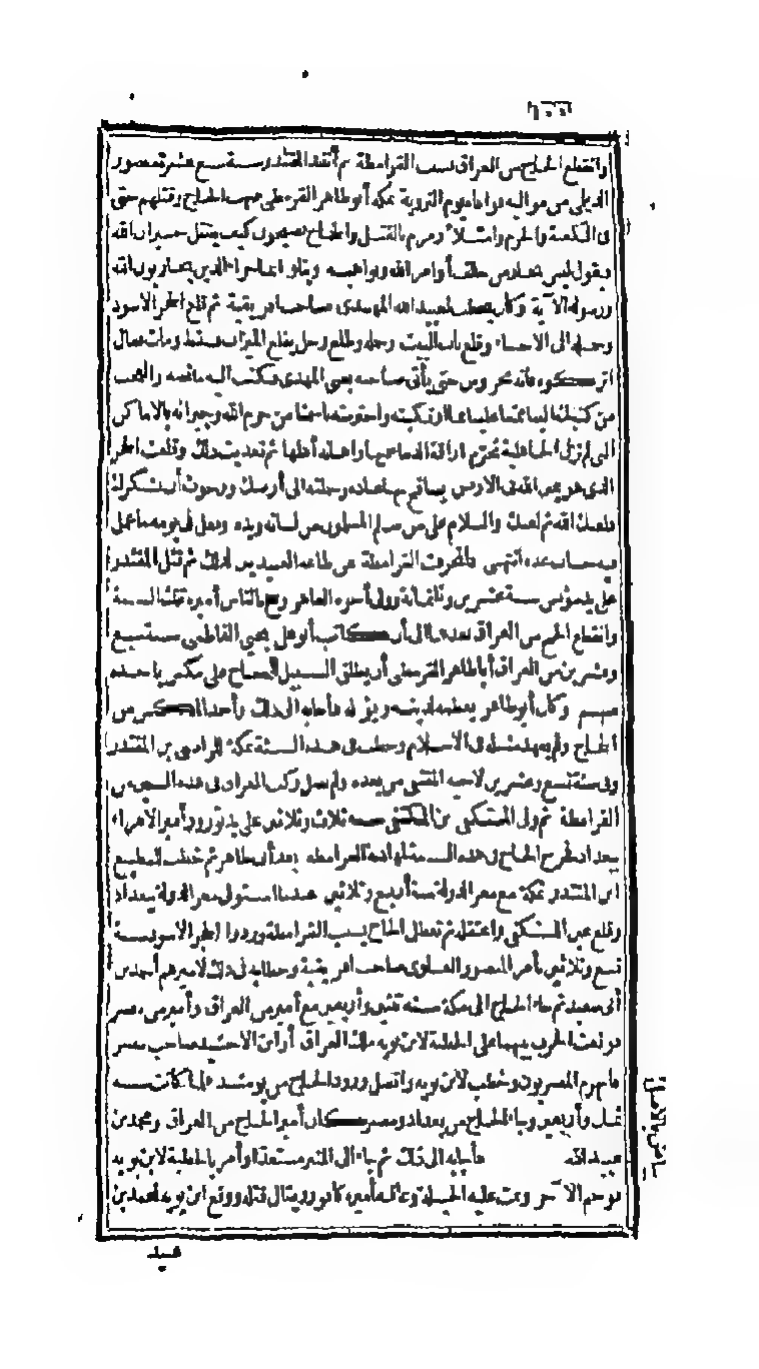 وانقطع الحاج من العراق بسبب القرامطة ثم أنفذ المقتدر سنة سبع عشرة منصور
الديلمي من مواليه فوافاه يوم التروية بمكة أبو طاهر القرمطي فنهب الحاج وقتلهم حتى
في الكعبة والحرم وامتلأ زمزم بالقتل والحجاج يصيحون كيف يقتل جيران الله
فيقول ليس بجار من خالف أوامر الله ونواهيه ويتلو انما جزاء الذين يحاربون الله
ورسوله الآية وكان يخطب لعبيد الله المهدي صاحب افريقية ثم قلع الحجر الاسود
وحمله الى الاحساء وقلع باب البيت وحمله وطلع رجل يقلع الميزاب فسقط ومات فقال
اتركوه فانه محروس حتى يأتي صاحبه يعني المهدي فكتب اليه ما نصه والعجب
من كتبك الينا ممتنا علينا بما ارتكبته واجترمته باسمنا من حرم الله وجيرانه بالاماكن
التي لم تزل الجاهلية تحرم اراقة الدماء فيها واهانة أهلها ثم تعديت ذلك وقلعت الحجر
الذي هو يمين الله في الارض يصافح بها عباده وحملته الى أرضك ورجوت أن نشكرك
فلعنك الله ثم لعنك والسلام على من سلم المسلمون من لسانه ويده وفعل في يومه ما عمل
فيه حساب غده انتهى فانحرفت القرامطة عن طاعة العبيديين لذلك ثم قتل المقتدر
على يد مؤنس سنة عشرين وثلثمائة وولى أخوه القاهر وحج بالناس أميره تلك السنة
وانقطع الحج من العراق بعدها الى أن كاتب أبو علي يحيى الفاطمي سنة سبع
وعشرين من العراق أبا طاهر القرمطي أن يطلق السبيل للحجاج على مكس يأخذه
منهم وكان أبو طاهر يعظمه لدينه ويؤمله فأجابه الى ذلك وأخذ المكس من
الحاج ولم يعهد مثله في الاسلام وخطب في هذه السنة بمكة للراضي بن المقتدر
وفي سنة تسع وعشرين لاخيه المتقي من بعده ولم يصل ركب العراق في هذه السنين من
القرامطة ثم ولى المستكفي بن المكتفي سنة ثلاث وثلاثين على يد توزون أمير الامراء
ببغداد فخرج الحاج في هذه السنة لمهادنة القرامطة بعد أبي طاهر ثم خطب للمطيع
ابن المقتدر بمكة مع معز الدولة سنة أربع وثلاثين عندما استولى معز الدولة ببغداد
وقلع عين المستكفي واعتقله ثم تعطل الحاج بسبب القرامطة وردوا الحجر الاسود سنة
تسع وثلاثين بأمر المنصور العلوي صاحب افريقية وخطابه في ذلك لاميرهم أحمد بن
أبي سعيد ثم جاء الحاج الى مكة سنة ثنتين وأربعين مع أمير من العراق وأمير من مصر
فوقعت الحرب بينهما على الخطبة لابن بويه ملك العراق أو ابن الاخشيد صاحب مصر
فانهزم المصريون وخطب لابن بويه واتصل ورود الحاج من يومئذ فلما كانت سنة
ثمان وأربعين وجاء الحاج من بغداد ومصر كان أمير الحاج من العراق ومحمد بن
عبيد الله فأجابه الى ذلك ثم جاء الى المنبر مستعدا وأمر بالخطبة لابن بويه
فوجم الآخر وتمت عليه الحيلة وعاقبه أميره كافور ويقال قتله ووقع ابن بويه لمحمد بن
عبيد
بياض بالاصل